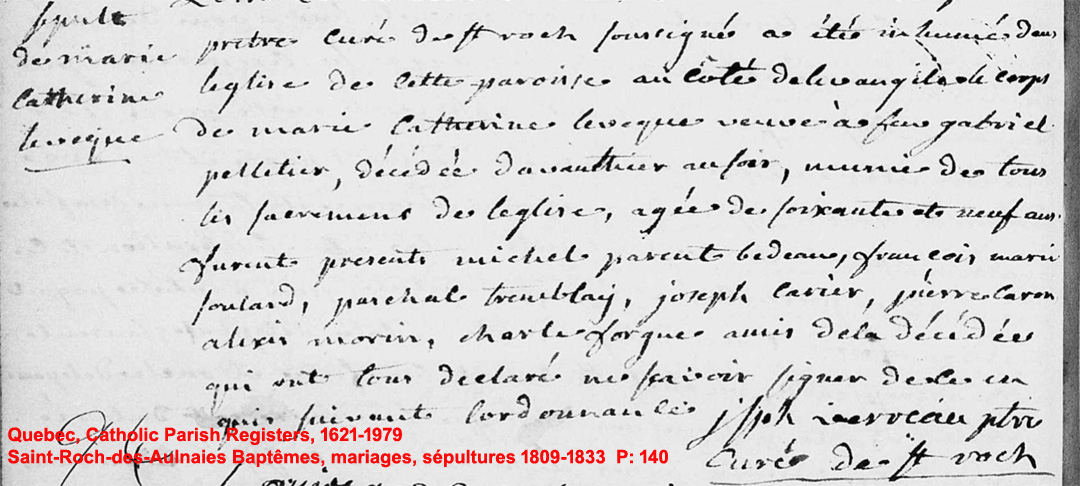 sepult
de marie
Catherine
leveque
prêtre curé de st roch soussigné a été inhumé dans
leglise de cette paroisse au côté delevangile le corps
de marie Catherine leveque veuve de feu gabriel
pelletier, décédée davanthier ausoir, munie de tous
les sacremens de leglise, agée de soixante et neuf ans.
furent presents michel parent bedeau, françois marie
soulard, paschal tremblay, joseph carier, pierre caron
alexis morin, charle forgue amis dela décédée
qui ont tous déclaré ne sçavoir signer dece en
quis suivant lordonnance jsph ptre
Curé de st roch
Quebec, Catholic Parish Registers, 1621-1979
Saint-Roch-des-Aulnaies Baptêmes, mariages, sépultures 1809-1833 P: 140